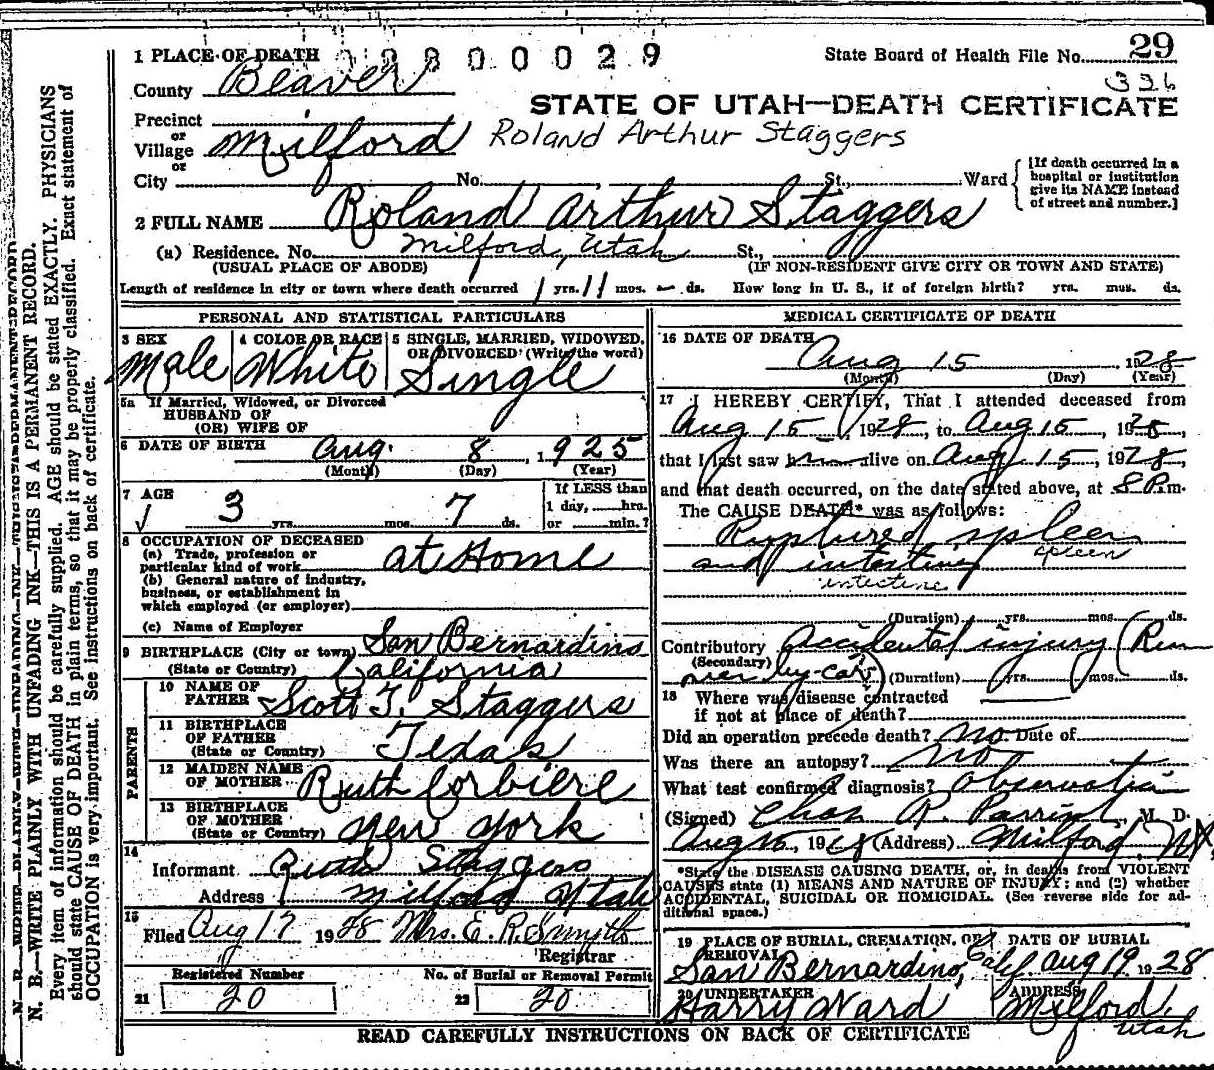 1 PLACE OF DEATH 2800029 State Board of Health File No. 29
County Beaver 326
STATE OF UTAH—DEATH CERTIFICATE
Precinct
or
Village Milford Roland Arthur Staggers
or
City No. St., Ward
[If death occurred in a
hospital or institution
give its NAME instead
of street and number.]
2 FULL NAME Roland Arthur Staggers
(a) Residence. No. Milford, Utah St.,
(USUAL PLACE OF ABODE) (IF NON-RESIDENT GIVE CITY OR TOWN AND STATE)
Length of residence in city or town where death occurred 1 yrs. 11 mos. — ds. How long in U. S., if of foreign birth? yrs. mos. ds.
PERSONAL AND STATISTICAL PARTICULARS
3 SEX 4 COLOR OR RACE 5 SINGLE, MARRIED, WIDOWED,
OR DIVORCED (Write the word)
Male White Single
5a If Married, Widowed, or Divorced
HUSBAND OF
(OR) WIFE OF
6 DATE OF BIRTH Aug. 8, 1925
(Month) (Day) (Year)
7 AGE If LESS than
3 yrs. mos. 7 ds. 1 day, hrs.
or min.?
8 OCCUPATION OF DECEASED
(a) Trade, profession or
particular kind of work at Home
(b) General nature of industry,
business, or establishment in
which employed (or employer)
(c) Name of Employer
9 BIRTHPLACE (City or town) San Bernardino
(State or Country) California
PARENTS
10 NAME OF
FATHER Scott T. Staggers
11 BIRTHPLACE
OF FATHER
(State or Country) Texas
12 MAIDEN NAME
OF MOTHER Ruth Corbiere
13 BIRTHPLACE
OF MOTHER
(State or Country) New York
14
Informant Ruth Staggers
Address Milford Utah
15
Filed Aug 17 1928 Mrs. E. R. Smyth
Registrar
Registered Number No. of Burial or Removal Permit
21 20 22 20
MEDICAL CERTIFICATE OF DEATH
16 DATE OF DEATH
Aug 15, 1928
(Month) (Day) (Year)
17 I HEREBY CERTIFY, That I attended deceased from
Aug 15, 1928, to Aug 15, 1928,
that I last saw h alive on Aug 15, 1928,
and that death occurred, on the date stated above, at 8 P.m.
The CAUSE DEATH* was as follows:
Ruptured spleen
and intestine spleen
intestine
(Duration) yrs. mos. ds.
Contributory accidental injury (Run
(Secondary)
over by car) (Duration) yrs. mos. ds.
18 Where was disease contracted
if not at place of death?
Did an operation precede death? no Date of
Was there an autopsy? no
What test confirmed diagnosis? Observation
(Signed) Chas R. Parrish, M. D.
Aug 15, 1928 (Address) Milford, Ut.
*State the DISEASE CAUSING DEATH, or, in deaths from VIOLENT
CAUSES state (1) MEANS AND NATURE OF INJURY; and (2) whether
ACCIDENTAL, SUICIDAL OR HOMICIDAL. (See reverse side for ad-
ditional space.)
19 PLACE OF BURIAL, CREMATION, OR DATE OF BURIAL
REMOVAL
San Bernardino, Calif. Aug 19 1928
20 UNDERTAKER ADDRESS
Harry Ward Milford, Utah
READ CAREFULLY INSTRUCTIONS ON BACK OF CERTIFICATE
N. B.—WRITE PLAINLY WITH UNFADING INK—THIS IS A PERMANENT RECORD.
Every item of information should be carefully supplied. AGE should be stated EXACTLY. PHYSICIANS
should state CAUSE OF DEATH in plain terms, so that it may be properly classified. Exact statement of
OCCUPATION is very important. See instructions on back of certificate.